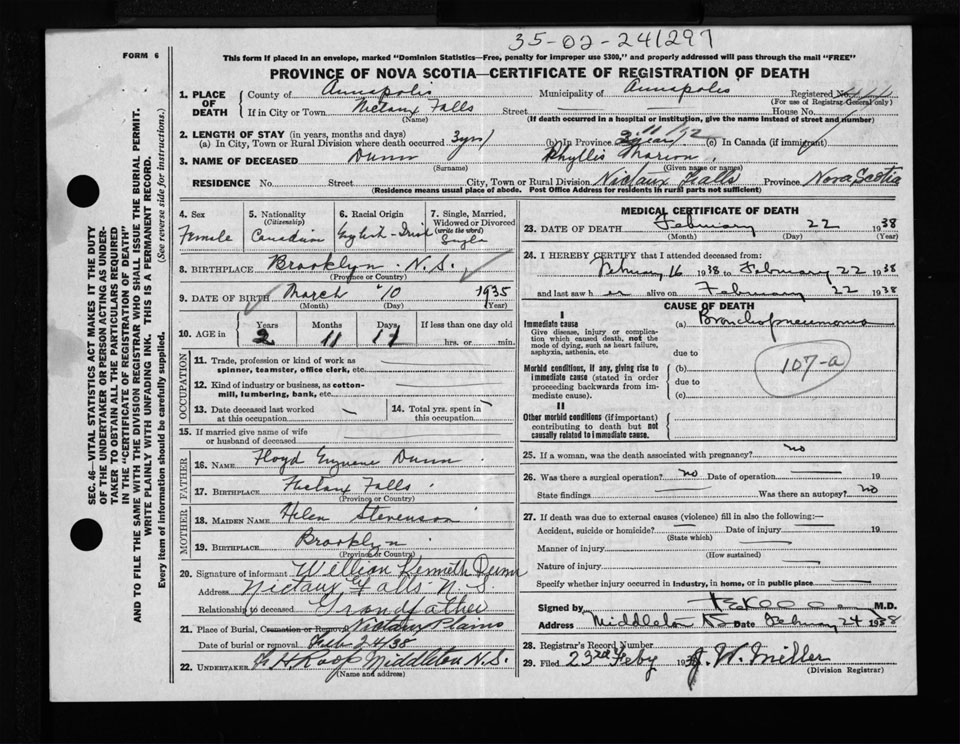 35-02-241297
FORM 6
This form if placed in an envelope, marked "Dominion Statistics—Free, penalty for improper use $300," and properly addressed will pass through the mail "FREE"
PROVINCE OF NOVA SCOTIA—CERTIFICATE OF REGISTRATION OF DEATH
1. PLACE OF DEATH
County of Annapolis Municipality of Annapolis Registered No.
(For use of Registrar General only)
If in City or Town Nictaux Falls Street House No.
(Name) (If death occurred in a hospital or institution, give the name instead of street and number)
2. LENGTH OF STAY (in years, months and days) 2/11/12
(a) In City, Town or Rural Division where death occurred 3 yrs (b) In Province (c) In Canada (if immigrant)
3. NAME OF DECEASED Dunn Phyllis Marion
(Surname) (Given name or names)
RESIDENCE No. Street City, Town or Rural Division Nictaux Falls Province Nova Scotia
(Residence means usual place of abode. Post Office Address for residents in rural parts not sufficient)
4. Sex Female
5. Nationality (Citizenship) Canadian
6. Racial Origin English - Irish
7. Single, Married, Widowed or Divorced (write the word) Single
8. BIRTHPLACE Brooklyn N.S.
(Province or Country)
9. DATE OF BIRTH March 10 1935
(Month) (Day) (Year)
10. AGE in Years Months Days If less than one day old
2 11 hrs. or min.
OCCUPATION
11. Trade, profession or kind of work as spinner, teamster, office clerk, etc.
12. Kind of industry or business, as cotton-mill, lumbering, bank, etc.
13. Date deceased last worked at this occupation
14. Total yrs. spent in this occupation
15. If married give name of wife or husband of deceased
FATHER
16. NAME Floyd Eugene Dunn
17. BIRTHPLACE Nictaux Falls
(Province or Country)
MOTHER
18. MAIDEN NAME Helen Stevenson
19. BIRTHPLACE Brooklyn
(Province or Country)
20. Signature of informant William Kenneth Dunn
Address Nictaux Falls N.S
Relationship to deceased Grandfather
21. Place of Burial, Cremation or Removal Nictaux Plains
Date of burial or removal Feb 24/38
22. UNDERTAKER Middleton N.S.
(Name and address)
MEDICAL CERTIFICATE OF DEATH
23. DATE OF DEATH February 22 1938
(Month) (Day) (Year)
24. I HEREBY CERTIFY that I attended deceased from
February 16 1938 to February 22 1938
and last saw her alive on February 22 1938
CAUSE OF DEATH
I
Immediate cause
Give disease, injury or complication which caused death, not the mode of dying, such as heart failure, asphyxia, asthenia, etc.
(a) Bronchopneumonia
due to
Morbid conditions, if any, giving rise to immediate cause (stated in order proceeding backwards from immediate cause).
(b)
due to
(c)
107-a
II
Other morbid conditions (if important) contributing to death but not causally related to immediate cause.
25. If a woman, was the death associated with pregnancy? no
26. Was there a surgical operation? no Date of operation 19
State findings Was there an autopsy? no
27. If death was due to external causes (violence) fill in also the following:—
Accident, suicide or homicide? Date of injury 19
(State which)
Manner of injury
(How sustained)
Nature of injury
Specify whether injury occurred in industry, in home, or in public place
Signed by M.D.
Address Middleton NS Date February 24 1938
28. Registrar's Record Number
29. Filed 23rd Feby 193 J. W. Miller
(Division Registrar)
SEC. 46—VITAL STATISTICS ACT MAKES IT THE DUTY
OF THE UNDERTAKER OR PERSON ACTING AS UNDER-
TAKER TO OBTAIN ALL THE PARTICULARS REQUIRED
IN THE "CERTIFICATE OF REGISTRATION OF DEATH"
AND TO FILE THE SAME WITH THE DIVISION REGISTRAR WHO SHALL ISSUE THE BURIAL PERMIT.
WRITE PLAINLY WITH UNFADING INK. THIS IS A PERMANENT RECORD.
Every item of information should be carefully supplied. (See reverse side for instructions.)